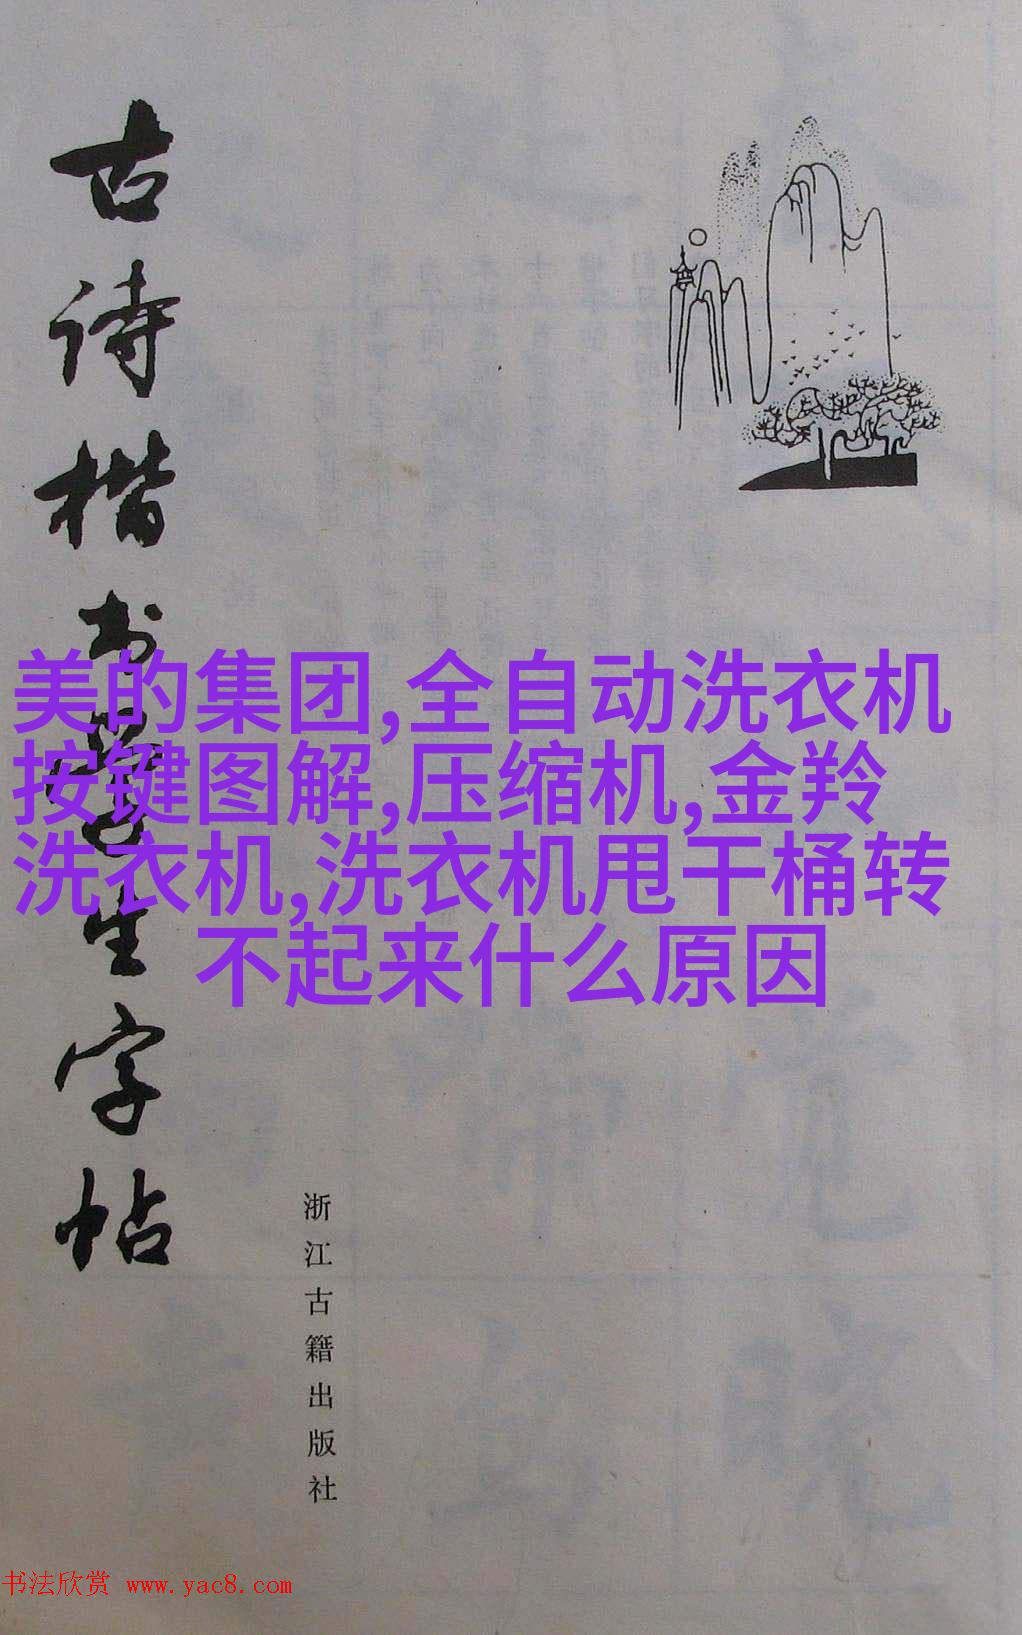 古诗楷书学生字帖
美的集团,全自动洗衣机
按键图解,压缩机,金羚
洗衣机,洗衣机甩干桶转
不起来什么原因
浙江古籍出版社
书法欣赏 www.yac8.com